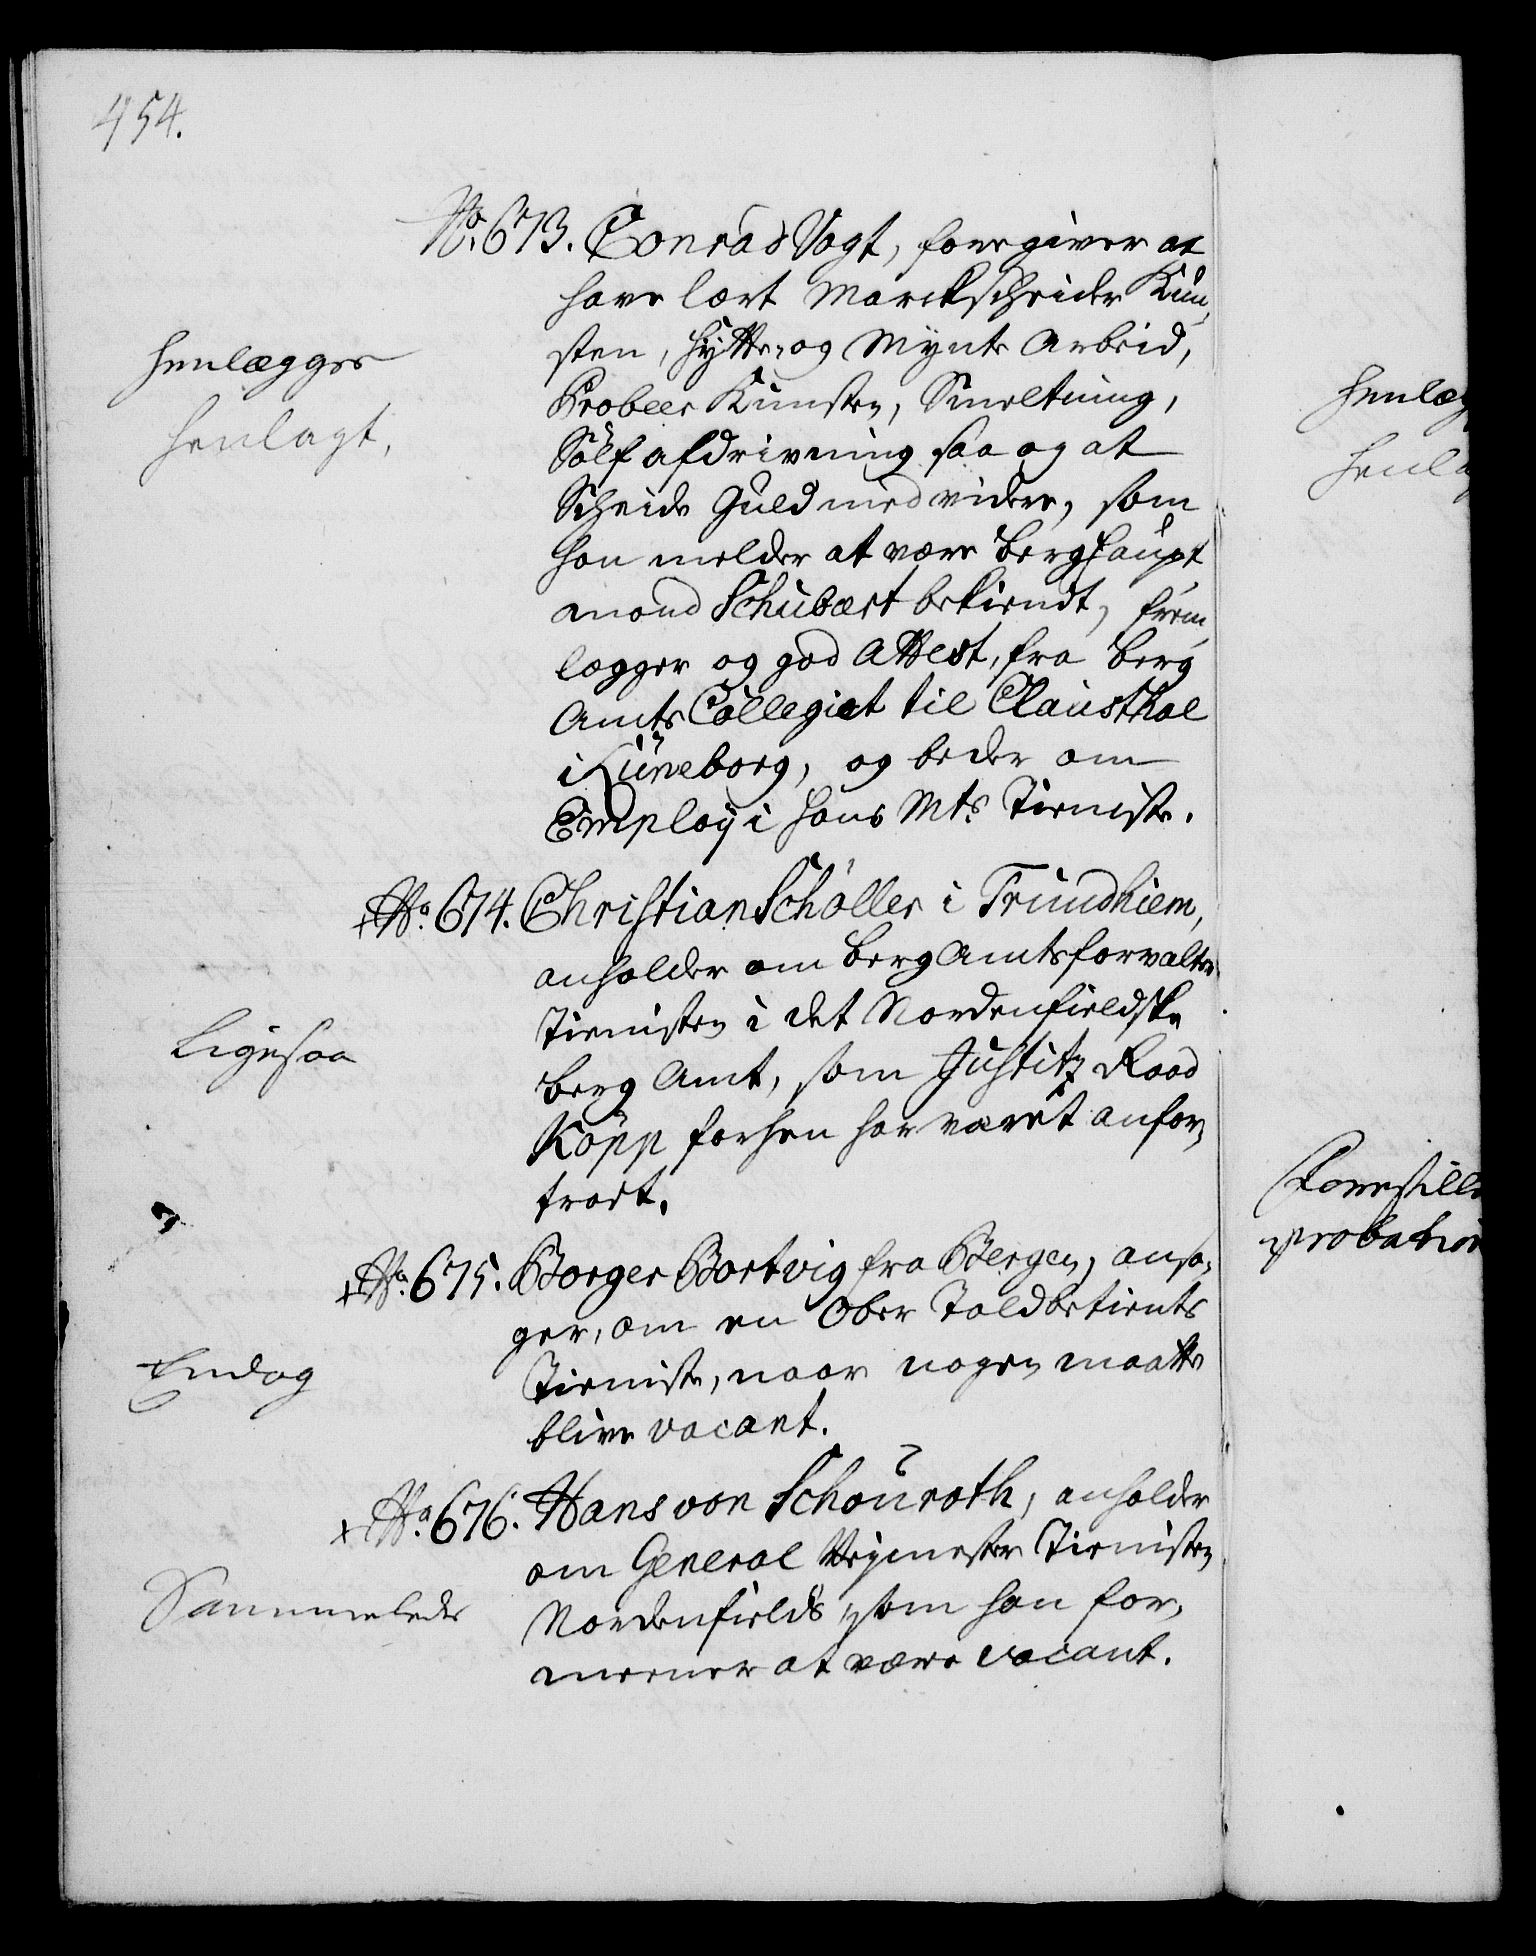 454.
No. 673. Conrad Vogt, foregiver at
have lært Marckscheider Kun-
sten, Hytte- og Mynte Arbeid,
Probeer Kunsten, Smeltning,
Sölf afdrivning saa og at
Scheide Guld med videre, som
han melder at være Berghaupt
mand Schubært bekiendt, frem-
lægger og god Attest, fra Berg
Amts Collegiet til Clausthal
i Lüneborg, og beder om
Employ i Hans Mts. Tieniste.
Henlægges
henlagt.
No. 674. Christian Schöller i Trundhiem,
anholder om Berg Amtsforvalter
Tienisten i det Nordenfieldske
Berg Amt, som Justitz Raad
Köpp forhen har været anfor-
troet.
Ligesaa
No. 675. Borger Bortvig fra Bergen, ansø-
ger, om en Ober Toldbetients
Tieniste, naar nogen maatte
blive vacant.
Endog
No. 676. Hans von Schouroth, anholder
om General Veymester Tienisten
Nordenfields, som han for-
meener at være vacant.
Sammeledes
Henlæg
henla
Forestille
probation